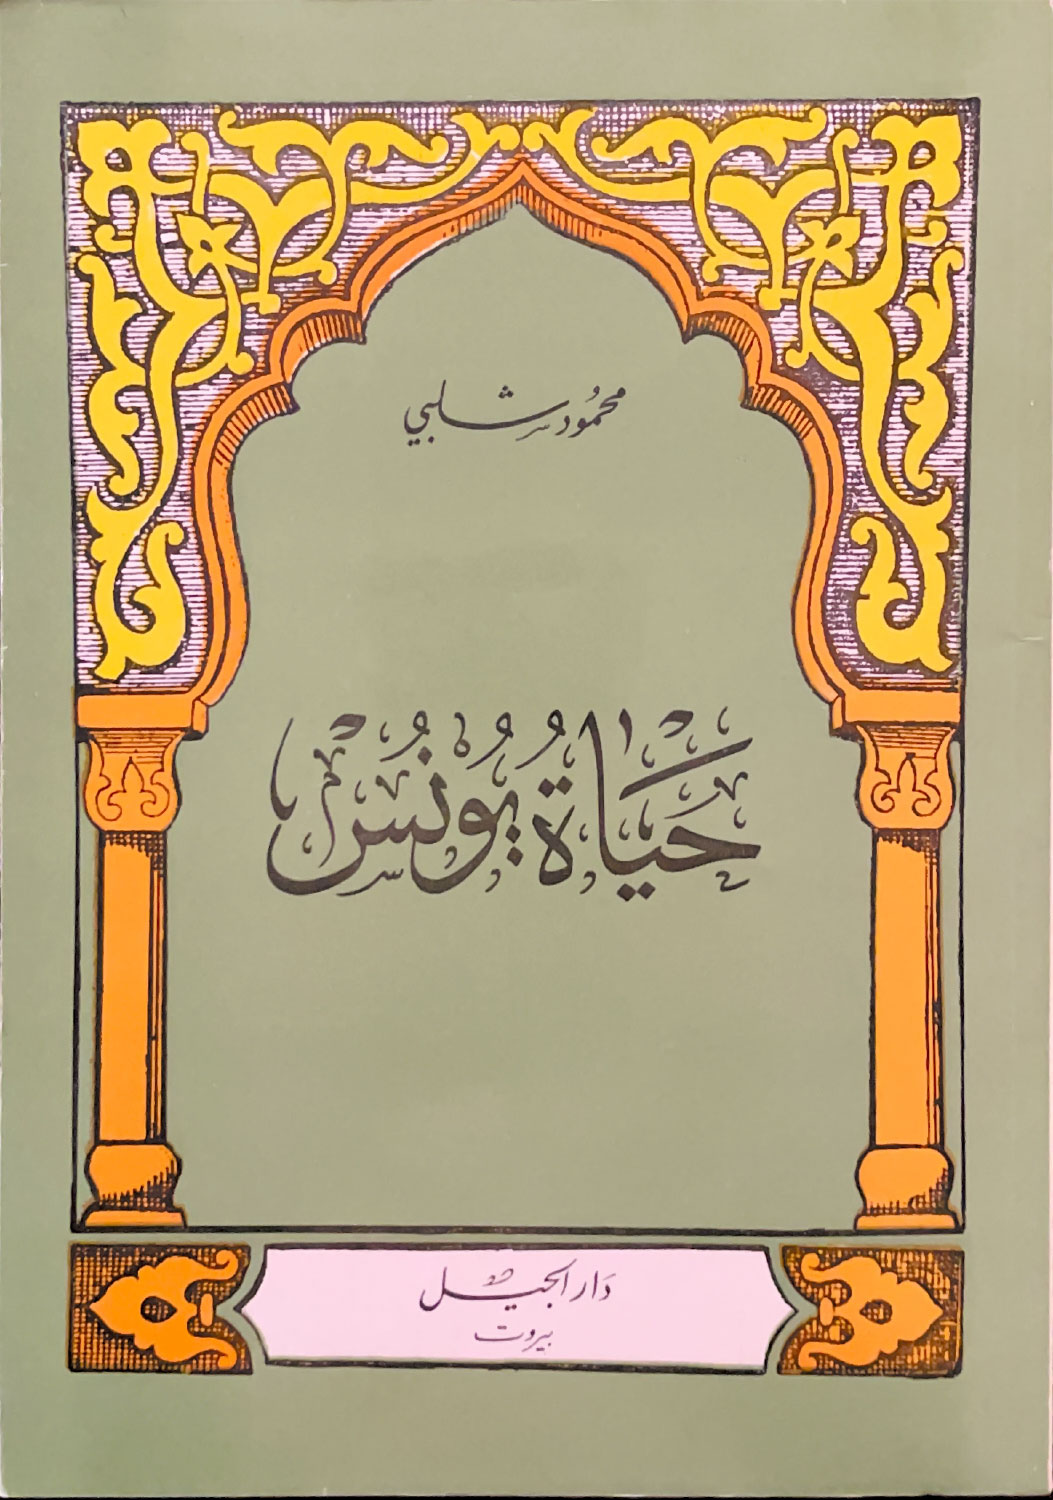 محمود شلبي
حَيَاة يُونُسْ
دَار الجيل
بيروت